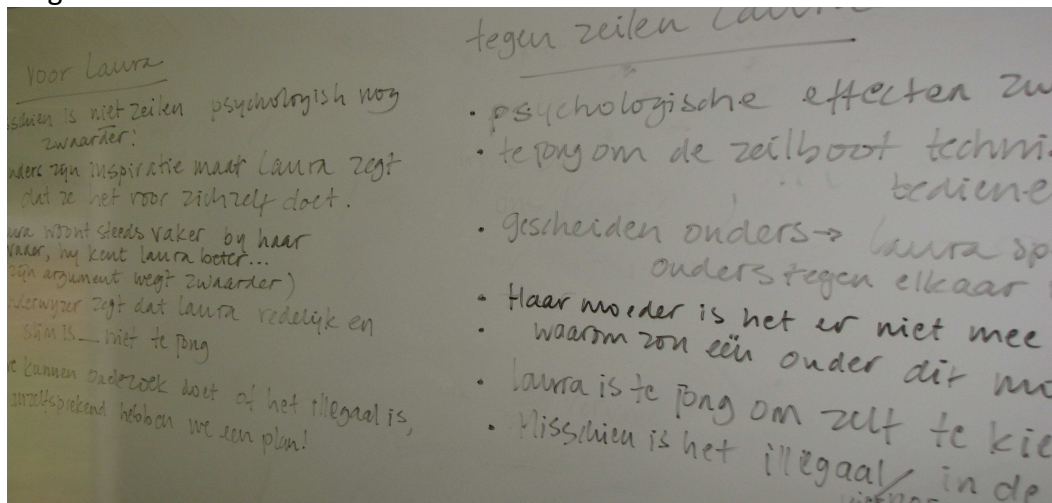 voor Laura
sschien is niet zeilen psychologish nog
zwaarder!
uders zijn inspiratie maar Laura zegt
dat ze het voor zichzelf doet.
ura woont steeds vaker bij haar
vader, hij kent laura beter...
zijn argument wegt zwaarder)
derwijzer zegt dat laura redelijk en
slim is_ niet te jong
e kunnen onderzoek doet of het illegaal is,
anzelfsprekend hebben we een plan!
tegen zeilen Laura
• psychologische effecten zw
• te jong om de zeilboot techni
bediene
• gescheiden ouders → laura sp
ouders tegen elkaar
• Haar moeder is het er niet mee
• waarom zon eën ouder dit mo
• laura is te jong om zelf te kie
• Misschien is het illegaal/ in de